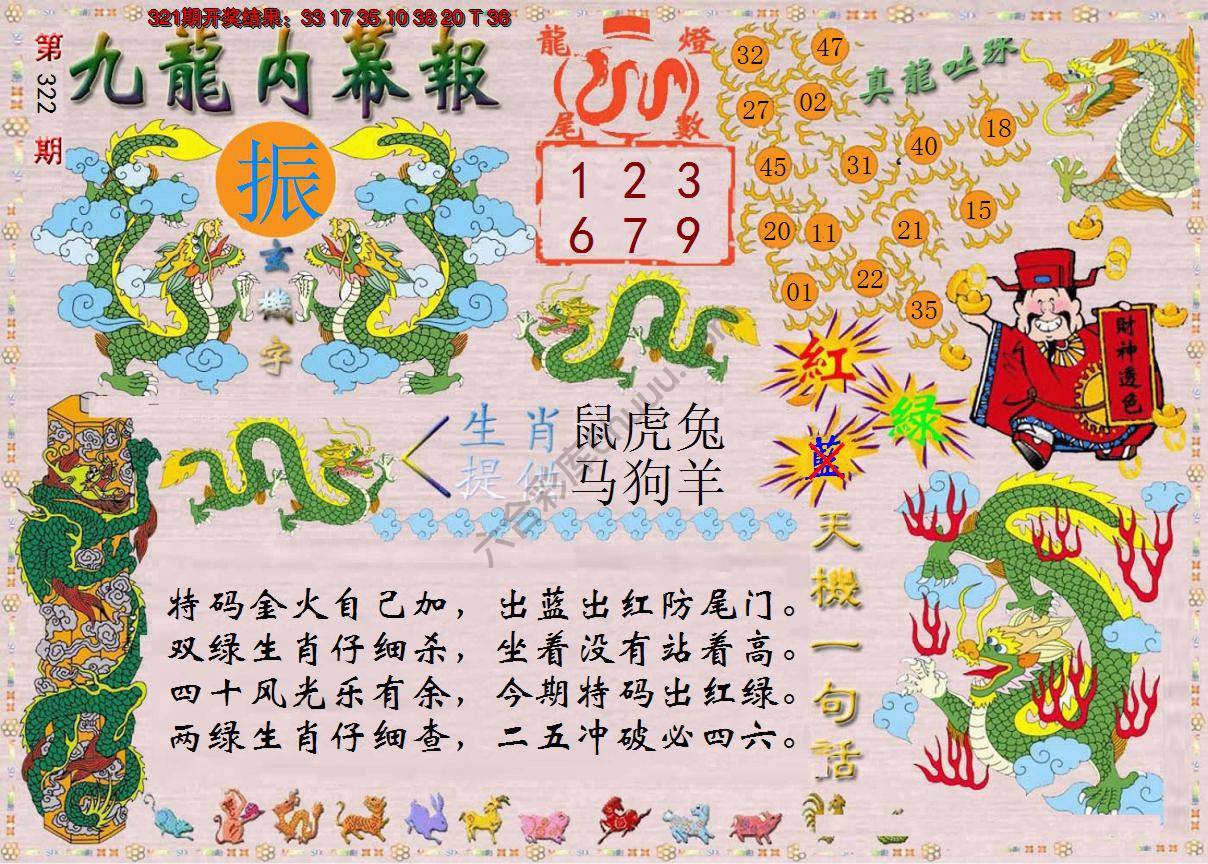 321期开奖结果：33 17 35 10 38 20 T 36
第322期
九龍内幕報
振
玄機字
龍燈
尾數
1 2 3
6 7 9
真龍吐珠
32 47
27 02
45 31 40 18
20 11 21 15
01 22 35
財神透色
紅
綠
藍
生肖
提供
鼠虎兔
马狗羊
天機一句話
特码金火自己加，出蓝出红防尾门。
双绿生肖仔细杀，坐着没有站着高。
四十风光乐有余，今期特码出红绿。
两绿生肖仔细查，二五冲破必四六。